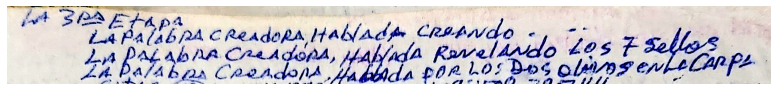 LA 3RA Etapa
LA PAlAbRA CREAdORA, HAblAdA CREANdO . . .
LA PALAbRA CREAdORA, HAblAdA RevelANdo Los 7 Sellos
LA PAlAbRA CREAdORA, HAblAdA POR LOS DOS olivos EN LA CARPA